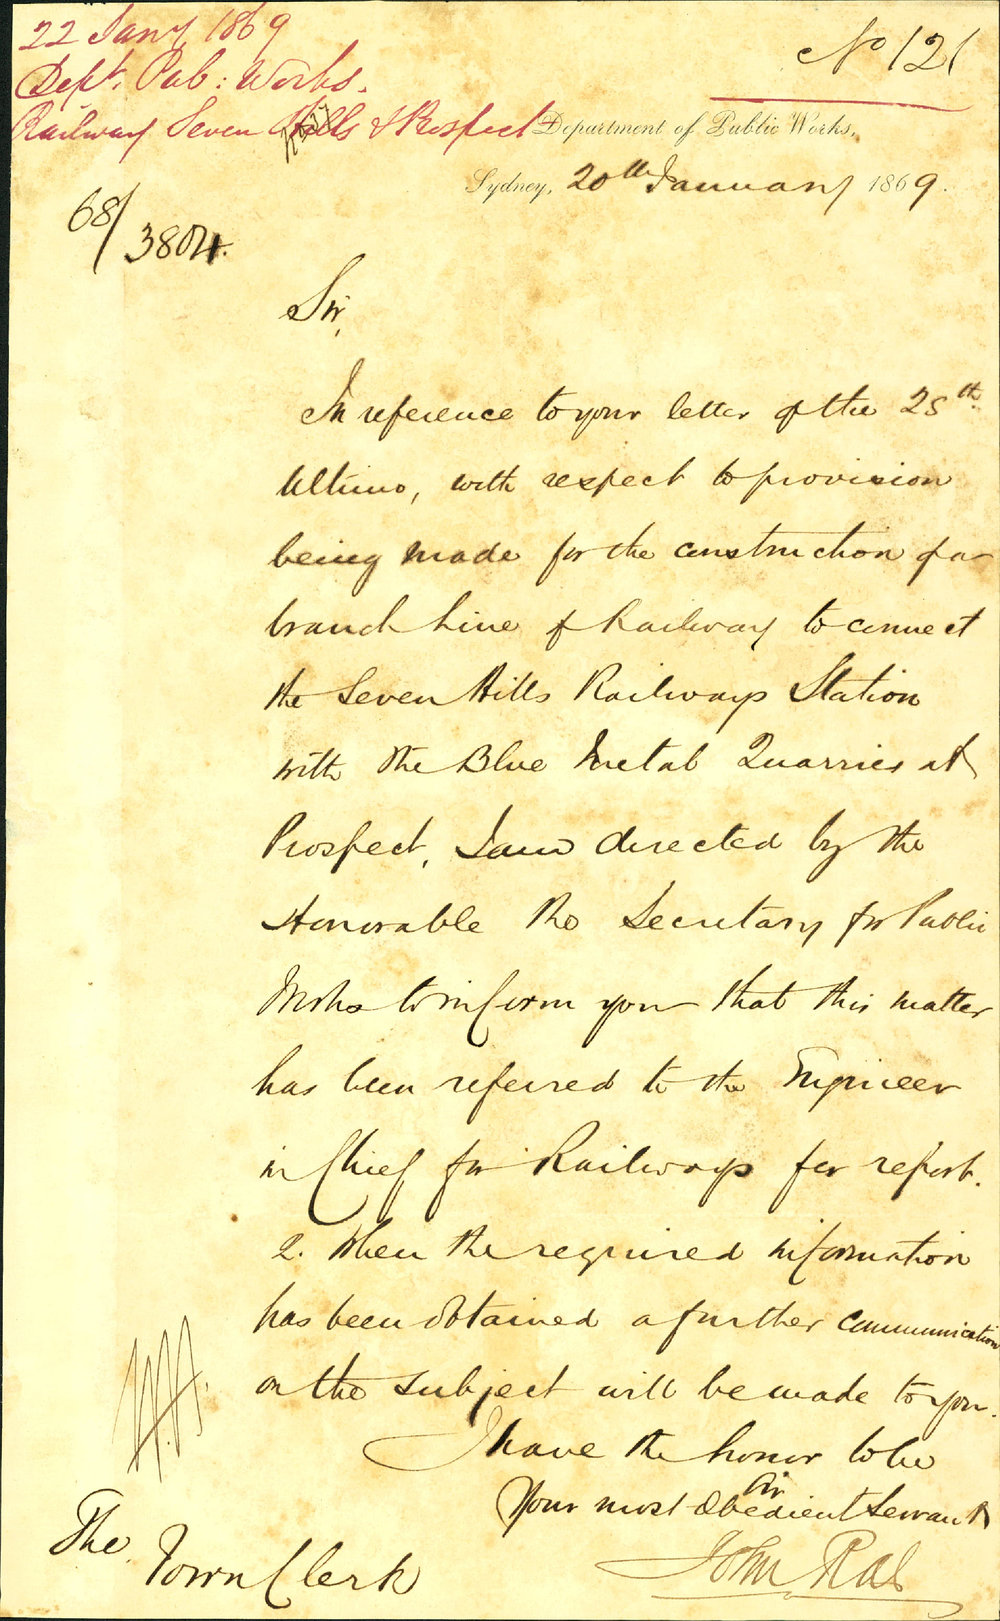 22 Jany 1869
Dept. Pub: Works.
Railway Seven Hills & Prospect
No 121
Department of Public Works,
Sydney, 20th January 1869.
68/3804.
Sir,
In reference to your letter of the 25th
Ultimo, with respect to provision
being made for the construction of a
branch Line of Railway to connect
the Seven Hills Railways Station
with the Blue Metal Quarries at
Prospect, I am directed by the
Honorable the Secretary for Public
Works to inform you that this matter
has been referred to the Engineer
in Chief for Railways for report.
2. When the required information
has been obtained a further communication
on the subject will be made to you.
I have the honor to be
Sir
Your most Obedient Servant
John Rae
The Town Clerk